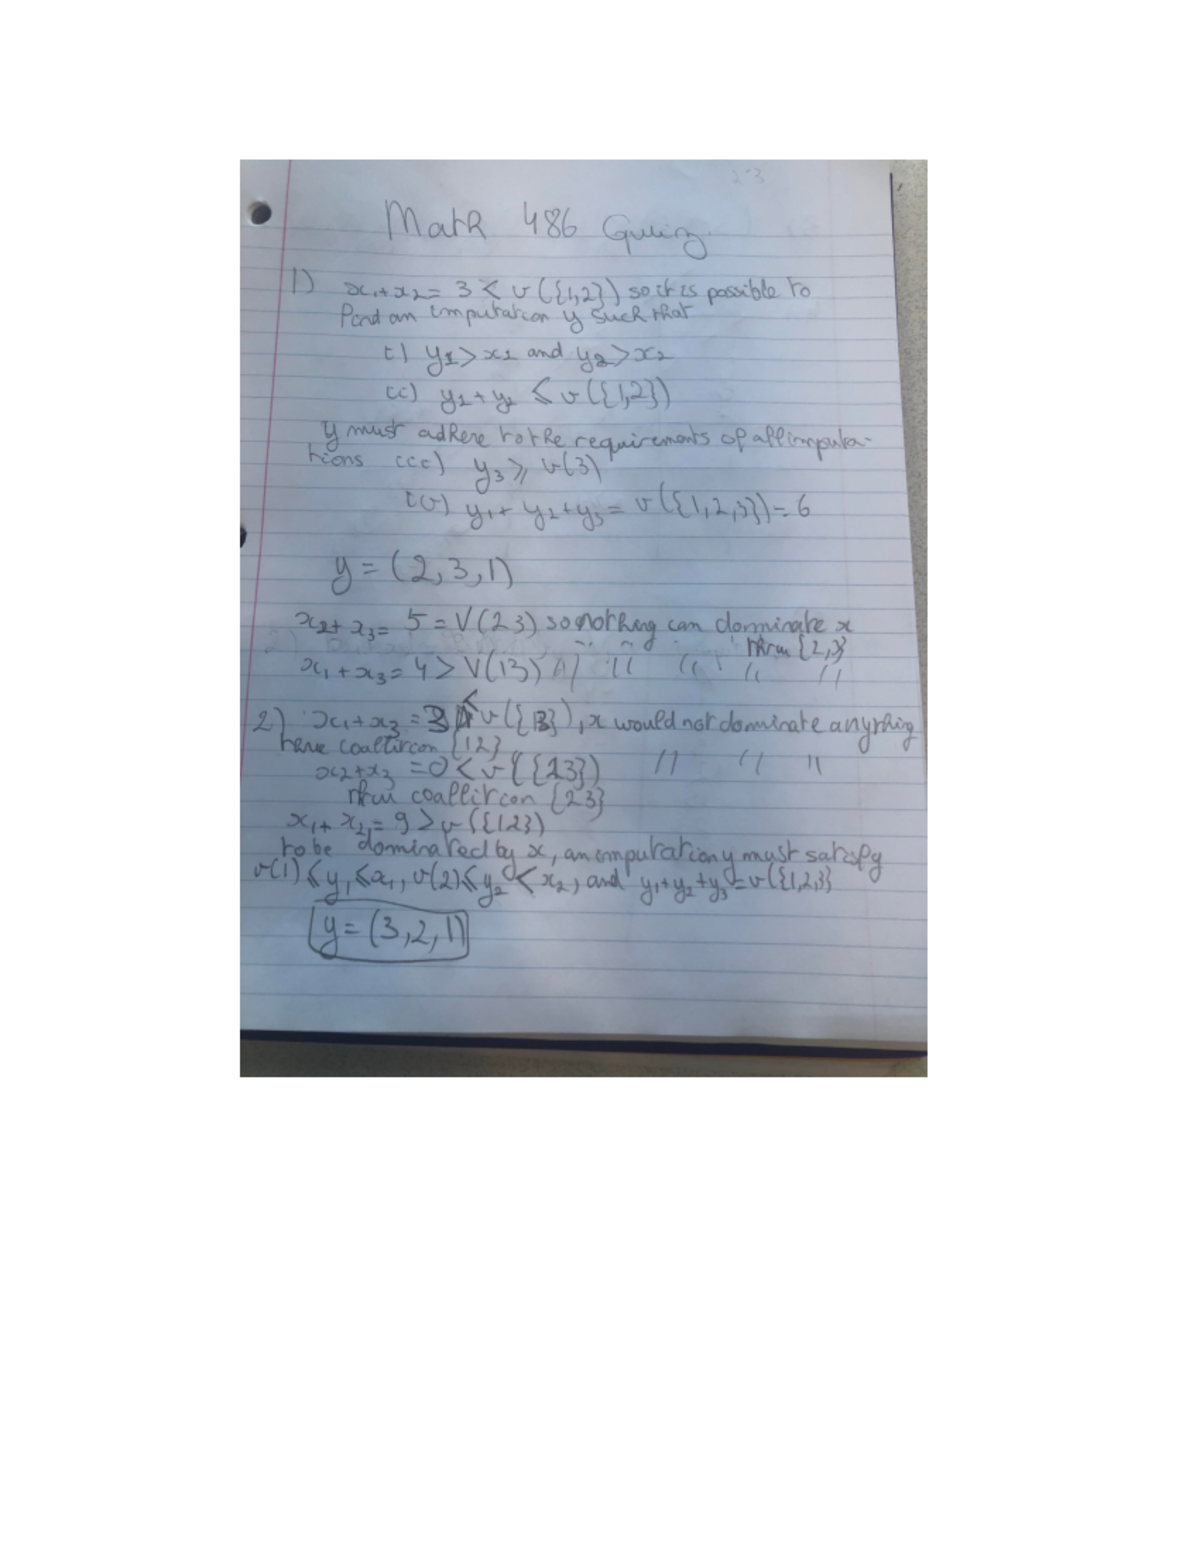 Math 486 Quiz
1) x₁+x₂= 3 < v({1,2}) so it is possible to
Find an imputation y such that
i) y₁>x₁ and y₂>x₂
ii) y₁+y₂ ⩽ v({1,2})
y must adhere to the requirements of all imputa-
tions iii) y₃ ⩾ v(3)
iv) y₁+ y₂+y₃ = v({1,2,3})=6
y = (2,3,1)
x₂+ x₃= 5 = V(23) so nothing can dominate x
thru {2,3}
x₁+x₃= 4 > V(13) " " " "
2) x₁+x₃ =3 < v({13}), x would not dominate anything
coalition {12}
x₂+x₃ =0 < v({23}) " " "
thru coalition {23}
x₁+ x₂= 9 > v({12})
to be dominated by x, an imputation y must satisfy
v(1)⩽y₁⩽x₁, v(2)⩽y₂<x₂, and y₁+y₂+y₃=v({1,2,3}
y= (3,2,1)